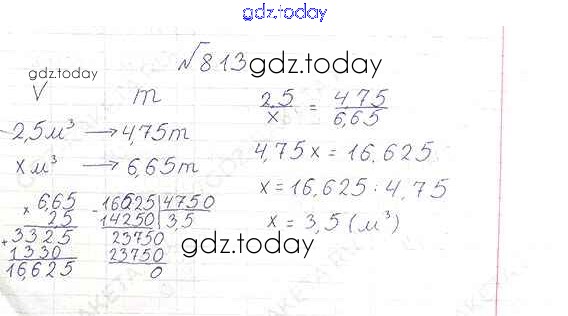 gdz.today
√813 gdz.today
gdz.today
V m
2,5м³ → 4,75т
x м³ → 6,65т
2,5/x = 4,75/6,65
4,75x = 16,625
x = 16,625 : 4,75
x = 3,5 (м³)
× 6,65
2,5
+ 3325
1330
16,625
- 16625 | 4750
14250 | 3,5
23750
23750
0
gdz.today